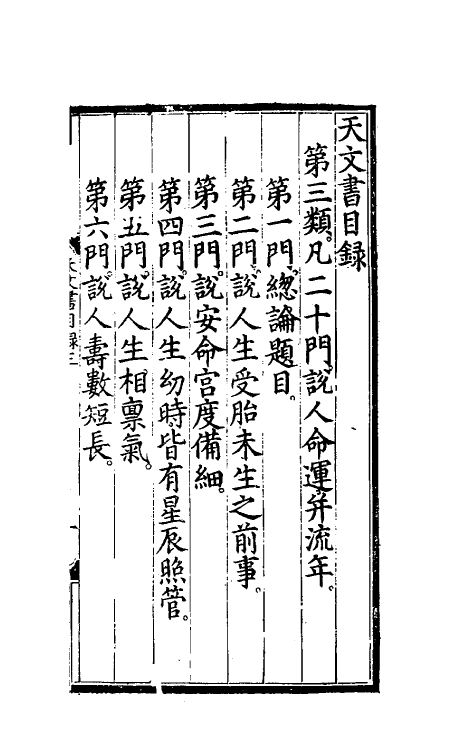 天文書目録
第三類。凡二十門、說人命運并流年。
第一門。總論題目。
第二門。說人生受胎未生之前事。
第三門。說安命宮度備細。
第四門。說人生幼時皆有星辰照管。
第五門。說人生相禀氣。
第六門。說人壽數短長。
天文書目録三